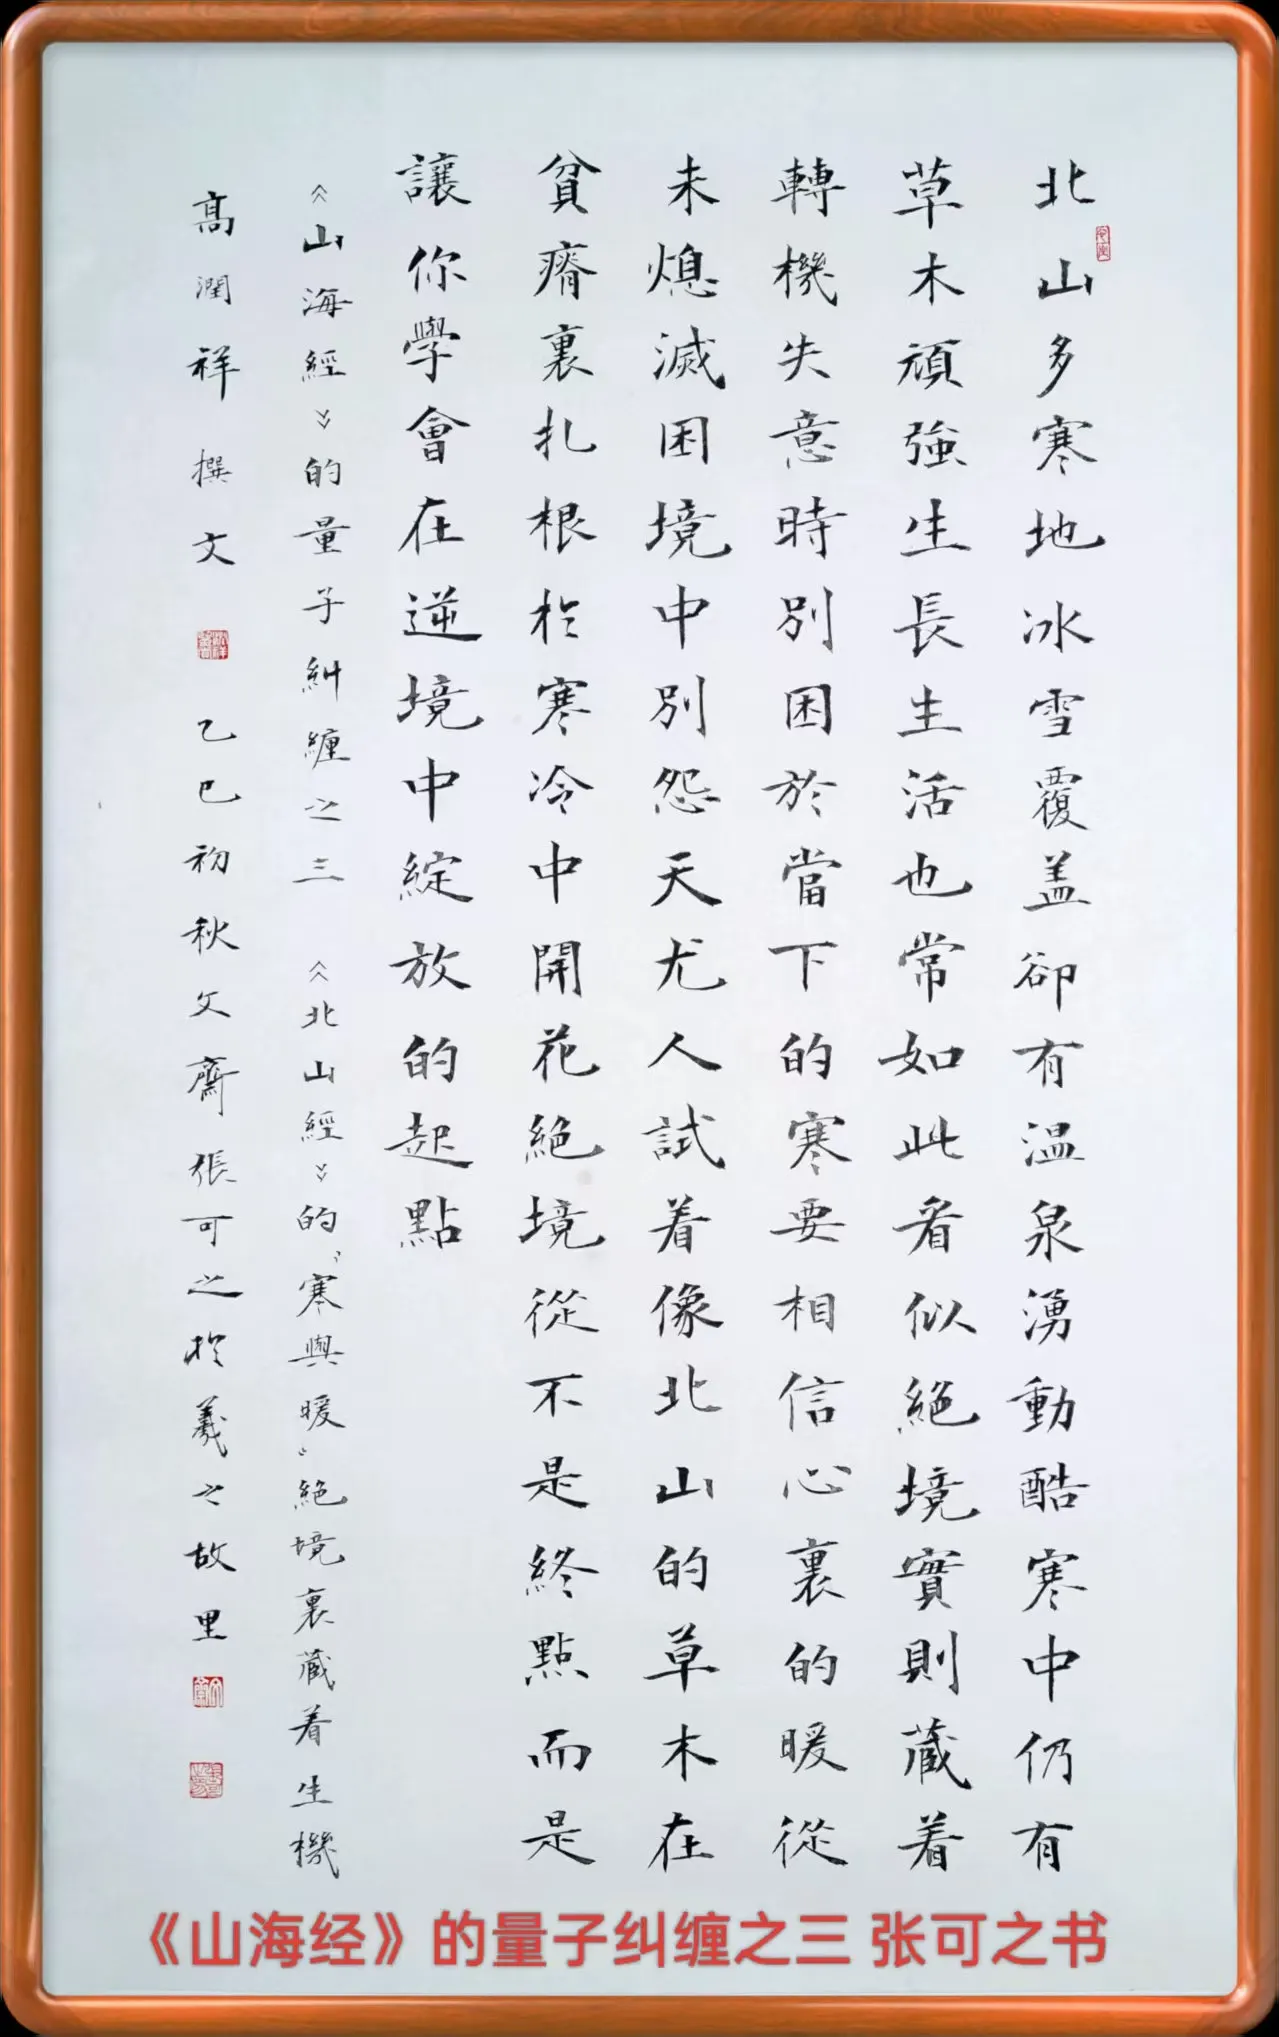 北山多寒地冰雪覆盖卻有温泉湧動酷寒中仍有
草木頑強生長生活也常如此看似絕境實則藏着
轉機失意時別困於當下的寒要相信心裏的暖從
未熄滅困境中別怨天尤人試着像北山的草木在
貧瘠裏扎根於寒冷中開花絕境從不是終點而是
讓你學會在逆境中綻放的起點
《山海經》的量子糾纏之三 《北山經》的“寒與暖”絕境裏藏着生機
高潤祥 撰文 乙巳初秋文齋張可之於羲之故里
《山海经》的量子纠缠之三 张可之书